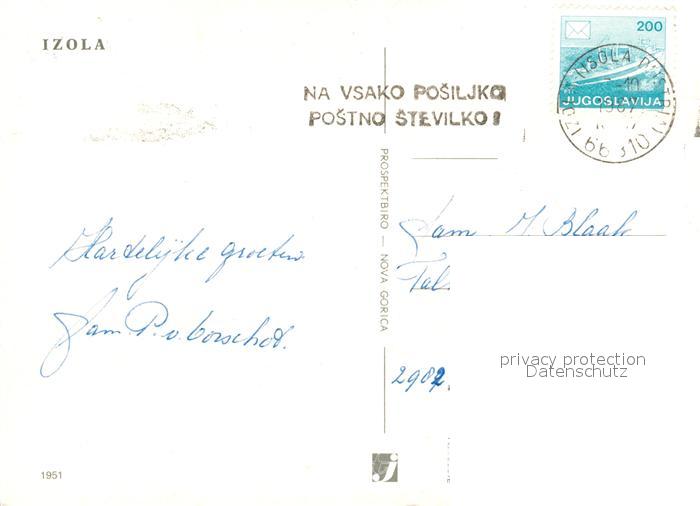 IZOLA
200
JUGOSLAVIJA
IZOLA (ISOLA D'ISTRIA)
66310
NA VSAKO POŠILJKO
POŠTNO ŠTEVILKO!
PROSPEKTBIRO — NOVA GORICA
Hartelijke groeten
Fam. P. v. Oorschot.
Fam M. Blaak
Tal
2982
privacy protection
Datenschutz
1951